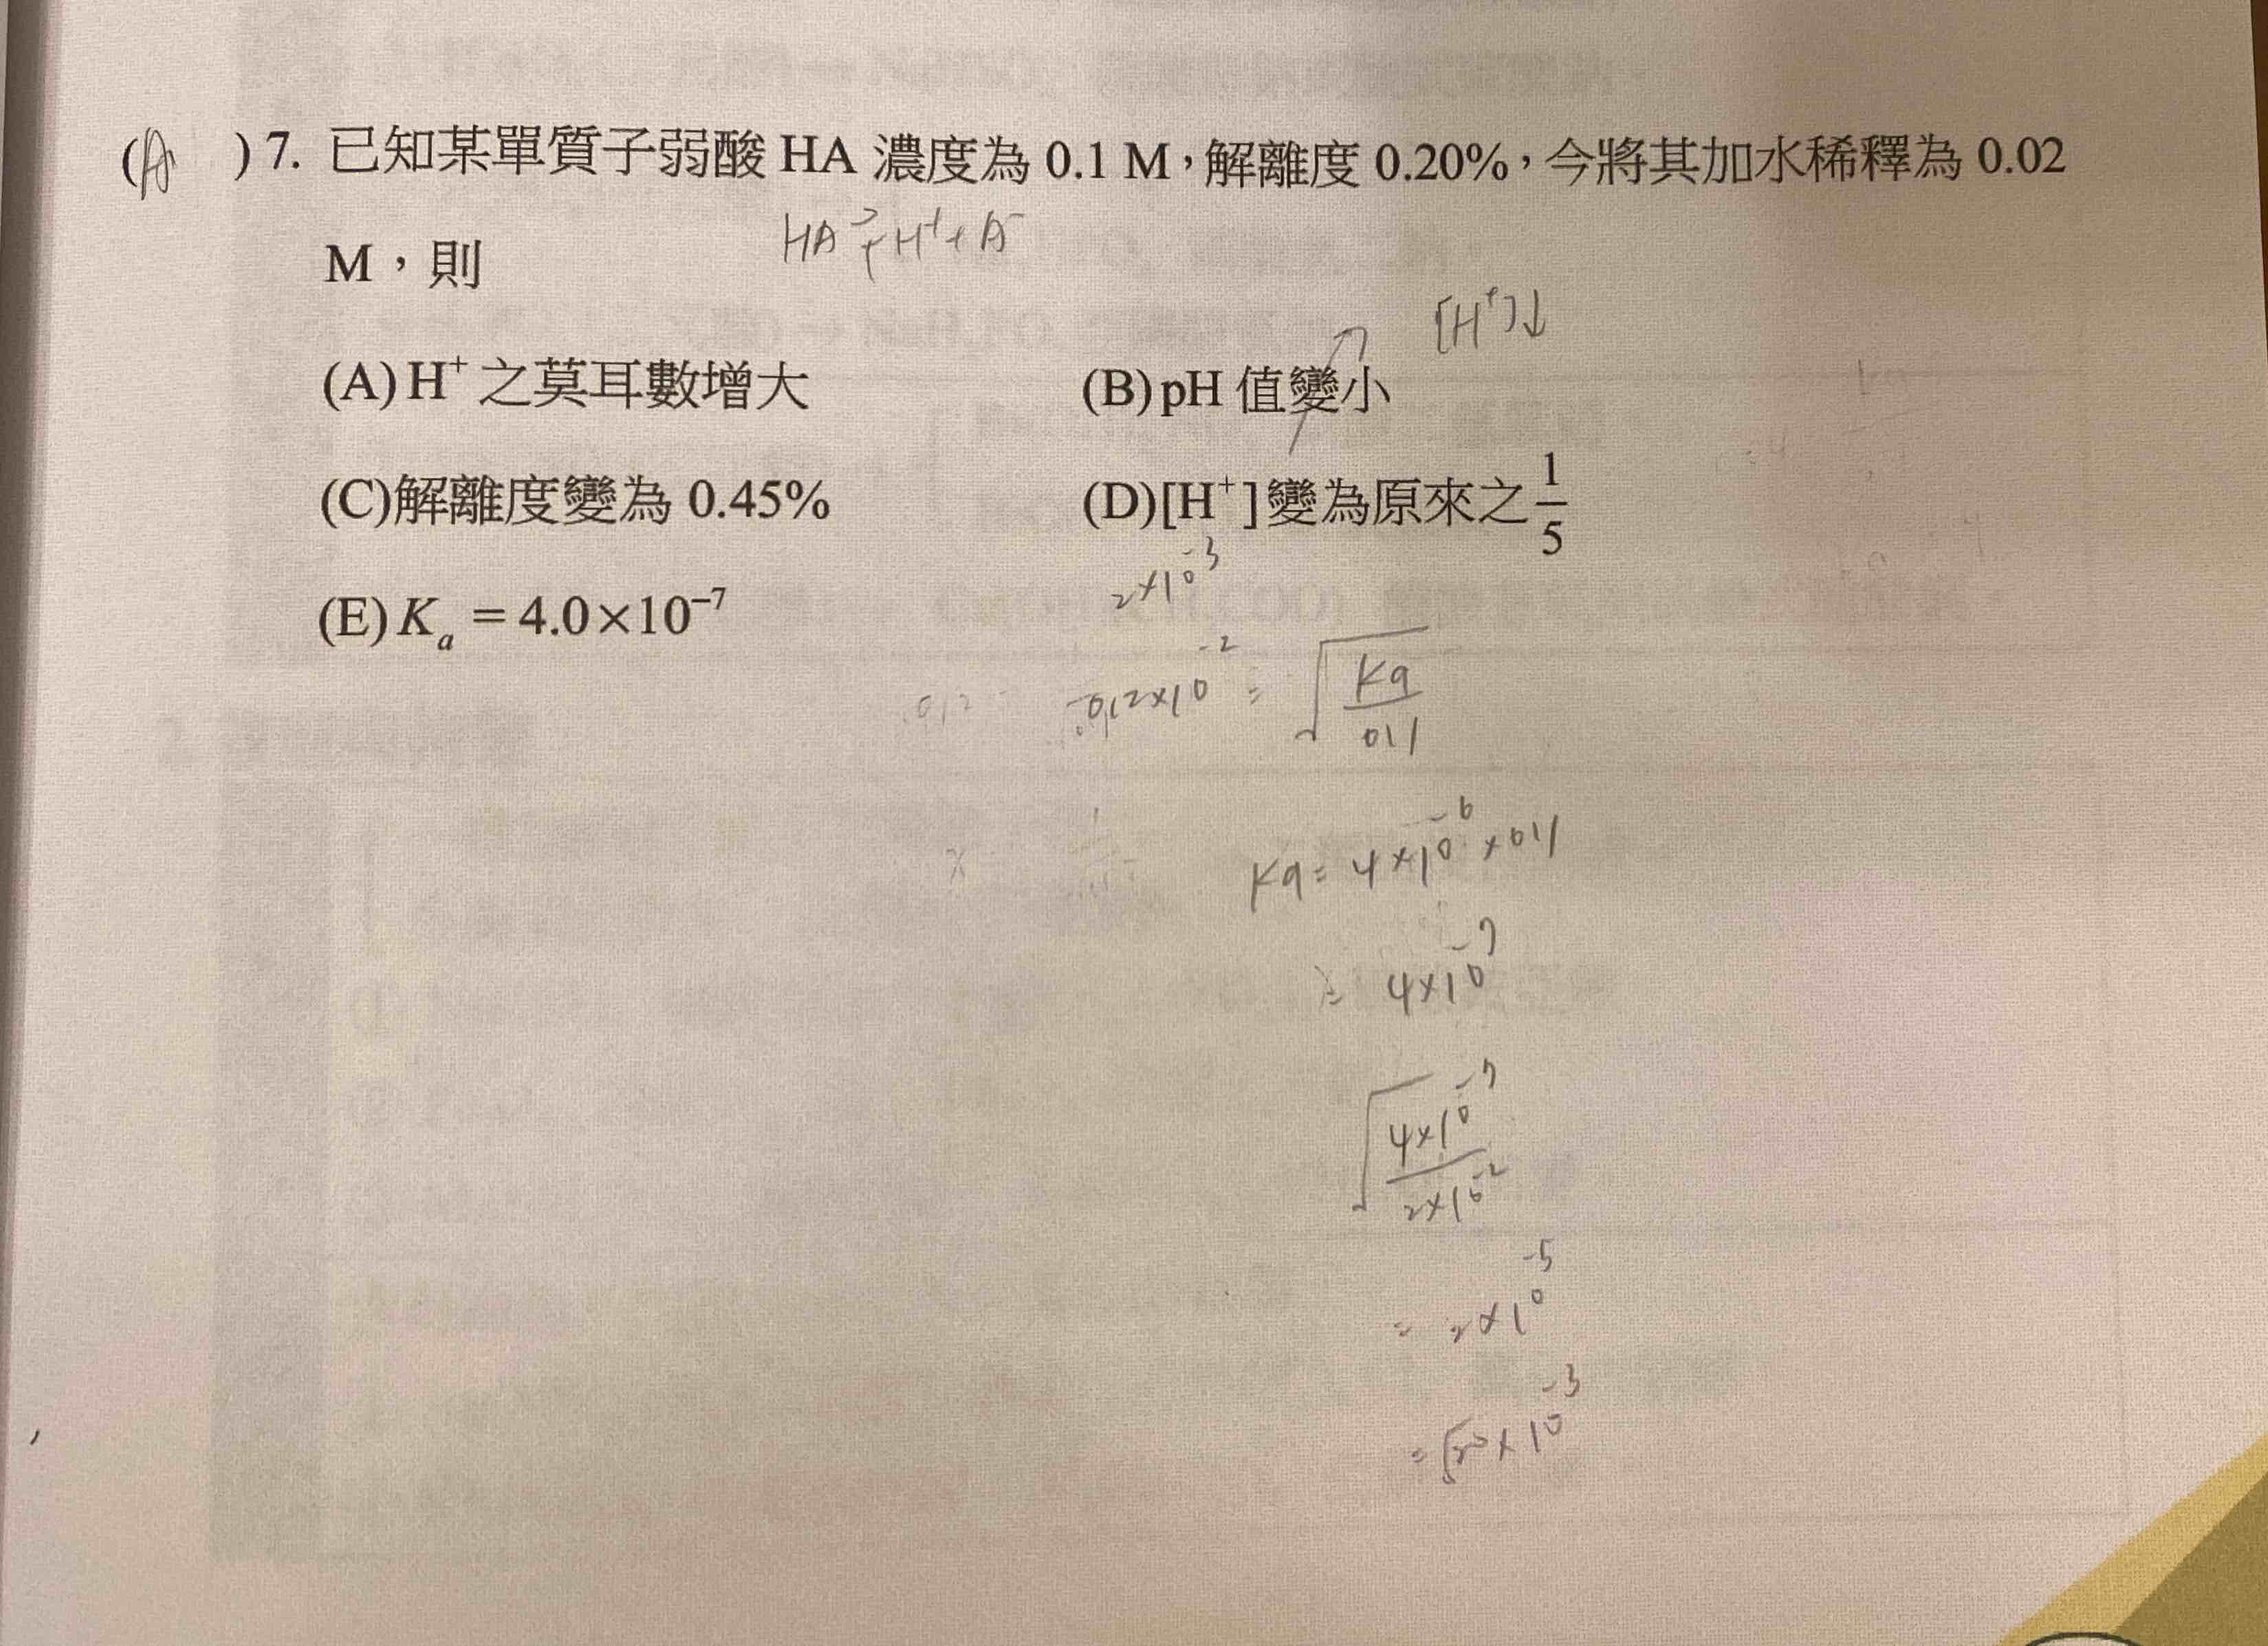 (A)7. 已知某單質子弱酸 HA 濃度為 0.1 M，解離度 0.20%，今將其加水稀釋為 0.02
M，則
HA ⇌ H⁺ + A⁻
[H⁺]↓
(A) H⁺ 之莫耳數增大 (B) pH 值變小
(C)解離度變為 0.45% (D)[H⁺]變為原來之 1/5
2×10⁻³
(E) Kₐ = 4.0×10⁻⁷
0.2×10⁻² = √(Ka/0.1)
Ka = 4×10⁻⁶×0.1
= 4×10⁻⁷
√(4×10⁻⁷/2×10⁻²)
= 2×10⁻⁵
= √20×10⁻³